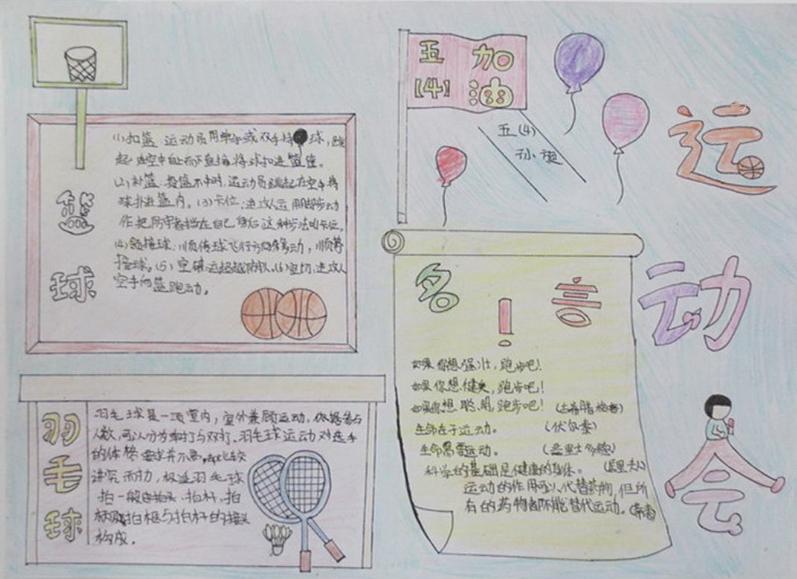 五(4)
加油
五(4)
孙
运动会
篮球
(1)扣篮:运动员用单手或双手持球,跳
起在空中自上而下直接将球扣进篮筐。
(2)补篮:投篮不中时,运动员跳起在空中将
球扑进篮内。(3)卡位:进攻人运用脚步动
作把防守者挡在自己身后这种步法叫卡位。
(4)领接球:顺传球飞行方向移动,顺势
接球。(5)空切:进攻人
空手向篮跑动。
名言!
如果你想强壮,跑步吧!
如果你想健美,跑步吧!
如果你想聪明,跑步吧!(古希腊格言)
生命在于运动。(伏尔泰)
生命需要运动。(亚里士多德)
科学的基础是健康的身体。(居里夫人)
运动的作用可以代替药物,但所
有的药物都不能替代运动。
羽毛球
羽毛球是一项室内,室外兼顾运动。依据参与
人数,可以分为单打与双打。羽毛球运动对选手
的体格要求并不高,却比较
讲究耐力,极适羽毛球
拍一般由拍头、拍杆、拍
柄及拍框与拍杆的接头
构成。